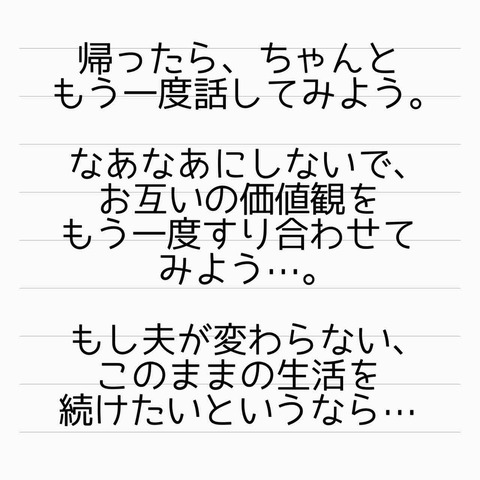 帰ったら、ちゃんと
もう一度話してみよう。
なあなあにしないで、
お互いの価値観を
もう一度すり合わせて
みよう…。
もし夫が変わらない、
このままの生活を
続けたいというなら…